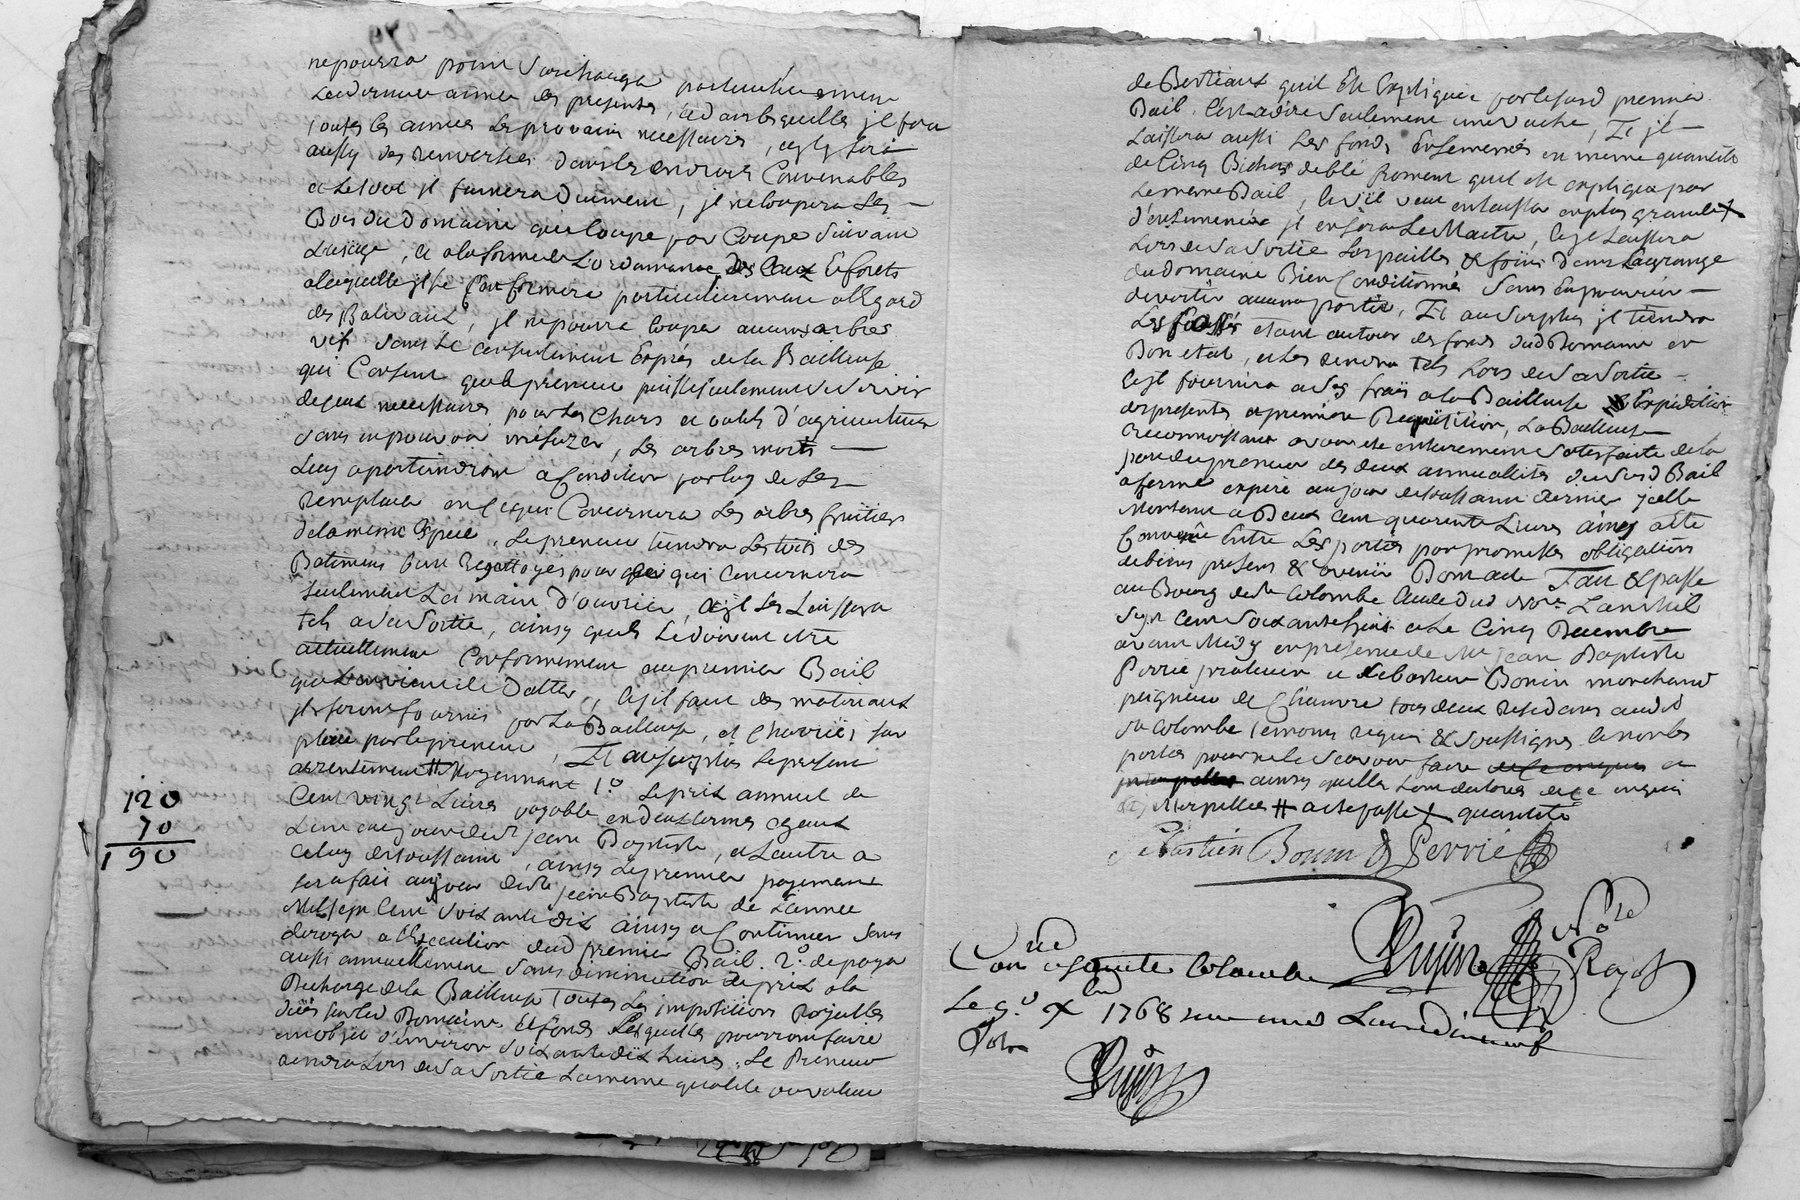 ne pourra point surcharger particulierement
La derniere année des presentes, et dans lesquelles jl fera
toutes les années Les provains necessaires, et jl fera
aussy des renversées dans les endroits Convenables
et Le tout jl fumera duement, jl ne Coupera Les
Bois du domaine que Coupe par Coupe Suivant
L'usage, et a la forme de L'ordonnance des Eaux & forets
a laquelle jl se Conformera particulierement a L'Egard
des Balivaux, jl ne pourra Couper aucuns arbres
vif sans Le consentement Exprés de la Bailleuse
qui Consent que le preneur puisse seulement se servir
de ceux necessaires pour Les Chars et outils d'agriculture
sans en pouvoir mésuzer, Les arbres morts
Luy apartiendront a Condition par luy de Les
remplacer en ce qui Concernera Les arbres fruitiers
de la meme Espece, Le preneur tiendra Les toits des
Batimens bien Regottoyés pour ce qui Concernera
seulement La main d'ouvrier, et jl Les Laissera
tels a sa Sortie, ainsy quils Le doivent etre
actuellement Conformement au premier Bail
que L'on vient de datter, et s'il faut des materiaux
jls seront fournis par La Bailleuse, et Charriés sur
place par le preneur, Et au surplus Le present
arrentement # Moyennant 1.º Le prix annuel de
Cent vingt Livres payable en deux termes egaux
L'un au jour de St Jean Baptiste, et L'autre a
Celuy de toussaint, ainsy Le premier payement
sera fait au jour de St Jean Baptiste de L'année
Mil sept Cent Soixante dix ainsy a Continuer sans
deroger a L'Execution dud premier Bail. 2.º de payer
aussi annuellement sans diminution du prix a la
Decharge de la Bailleuse Toutes Les impositions Royalles
düés sur led Domaine & fonds Lesquelles pourront faire
un objet d'environ Soixante dix Livres. Le Preneur
rendra Lors de sa Sortie La meme qualité ou valeur
120
70
190
de Bestiaux quil Est Expliqué par le susd premier
Bail, C'est a dire seulement une vache, Et jl
Laissera aussi Les fonds Ensemencés en meme quantité
de Cinq Bichets de blé froment quil est expliqué par
Le meme Bail, et s'il veut en Laisser en plus grande X
d'ensemencée jl en sera Le Maitre, et jl Laissera
Lors de sa Sortie Les pailles & foins dans La grange
du domaine Bien Conditionnés sans En pouvoir
divertir aucune portie, Et au Surplus jl tiendra
Les fossés etant autour des fonds dud Domaine en
Bon etat, et Les rendra tels Lors de sa Sortie
et jl fournira a ses frais a la Bailleuse Expedition
des presentes a premiere Requisition, La Bailleuse
reconnoissant avoir eté entierement satisfaite de la
part du preneur des deux annuallités du susd Bail
a ferme expiré au jour de toussaint dernier jcelles
Montant a Deux Cent quarente Livres ainsy a eté
Convenu Entre Les parties par promesses obligation
de biens presens & avenir Dont acte Fait & passé
au Bourg de Ste Colombe Etude dud Nore. L'an Mil
sept Cent Soixante huit et Le Cinq Decembre
avant Midy en presence de Mr Jean Baptiste
Perrié praticien et Sebastien Bonin marchand
peigneur de Chanvre tous deux residans audit
Ste Colombe temoins requis & soussignés et non les
parties pour ne le sçavoir faire de ce enquis et
interpellés ainsy quelles L'ont declaré de ce enquis
et jnterpellées # a eté passé X quantité
Sebastien Bonin Perrié
Nore
Royal
Conlé a Ste Colombe
Le 9.e Xbre 1768